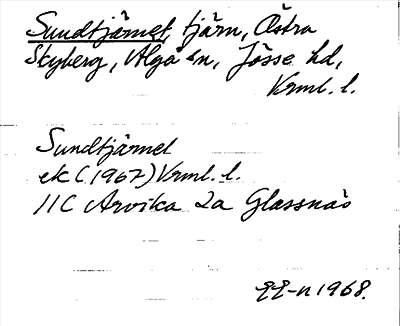 Sundtjärnet, tjärn, Östra
Skyberg, Älgå sn, Jösse hd,
Vrml. l.
Sundtjärnet
ek (1967) Vrml. l.
11C Arvika 2a Glassnäs
1968.